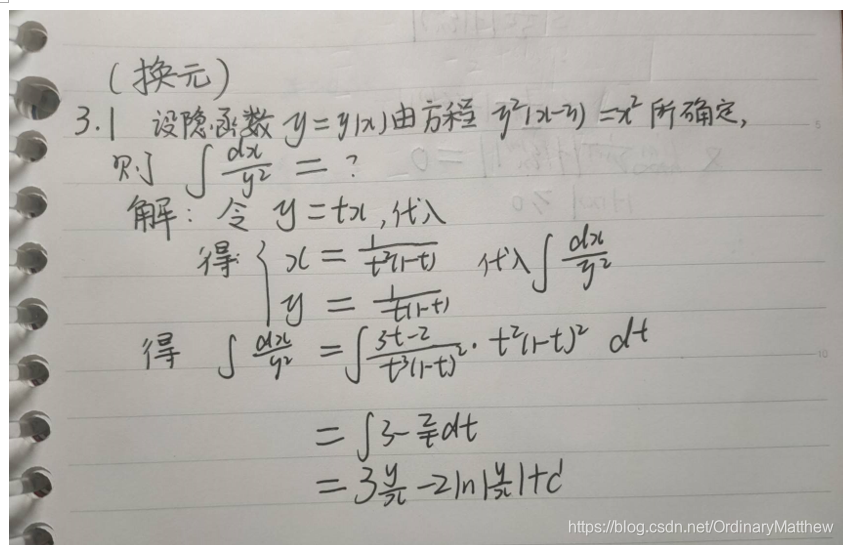 (换元)
3.1 设隐函数 y=y(x)由方程 y²(x-y)=x²所确定,
则 ∫dx/y² = ?
解:令 y=tx,代入
得 { x = 1/(t²(1-t)) 代入∫dx/y²
y = 1/(t(1-t))
得 ∫dx/y² = ∫(3t-2)/(t³(1-t)²)·t²(1-t)² dt
= ∫3-2/t dt
= 3y/x-2ln|y/x|+C
https://blog.csdn.net/OrdinaryMatthew